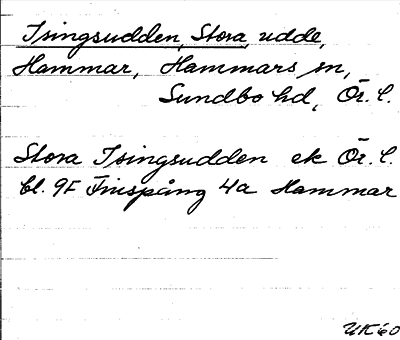 Isingsudden, Stora, udde,
Hammar, Hammars sn,
Sundbo hd, Ör. l.
Stora Isingsudden ek Ör. l.
bl. 9F Finspång 4a Hammar
UK 60